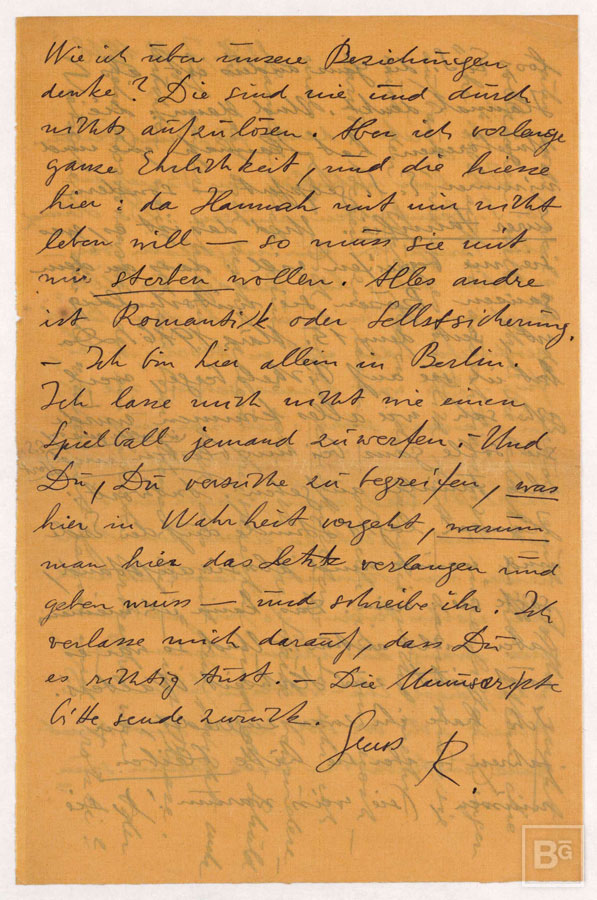 Wie ich über unsere Beziehungen
denke? Die sind nie und durch
nichts aufzulösen. Aber ich verlange
ganze Ehrlichkeit, und die hiesse
hier: da Hannah mit mir nicht
leben will — so muss sie mit
mir sterben wollen. Alles andre
ist Romantik oder Selbstsicherung.
— Ich bin hier allein in Berlin.
Ich lasse mich nicht wie einen
Spielball jemand zuwerfen. Und
Du, Du versuche zu begreifen, was
hier in Wahrheit vorgeht, warum
man hier das Letzte verlangen und
geben muss — und schreibe ihr. Ich
verlasse mich darauf, dass Du
es richtig tust. — Die Manuscripte
bitte sende zurück.
Gruss R.
BG